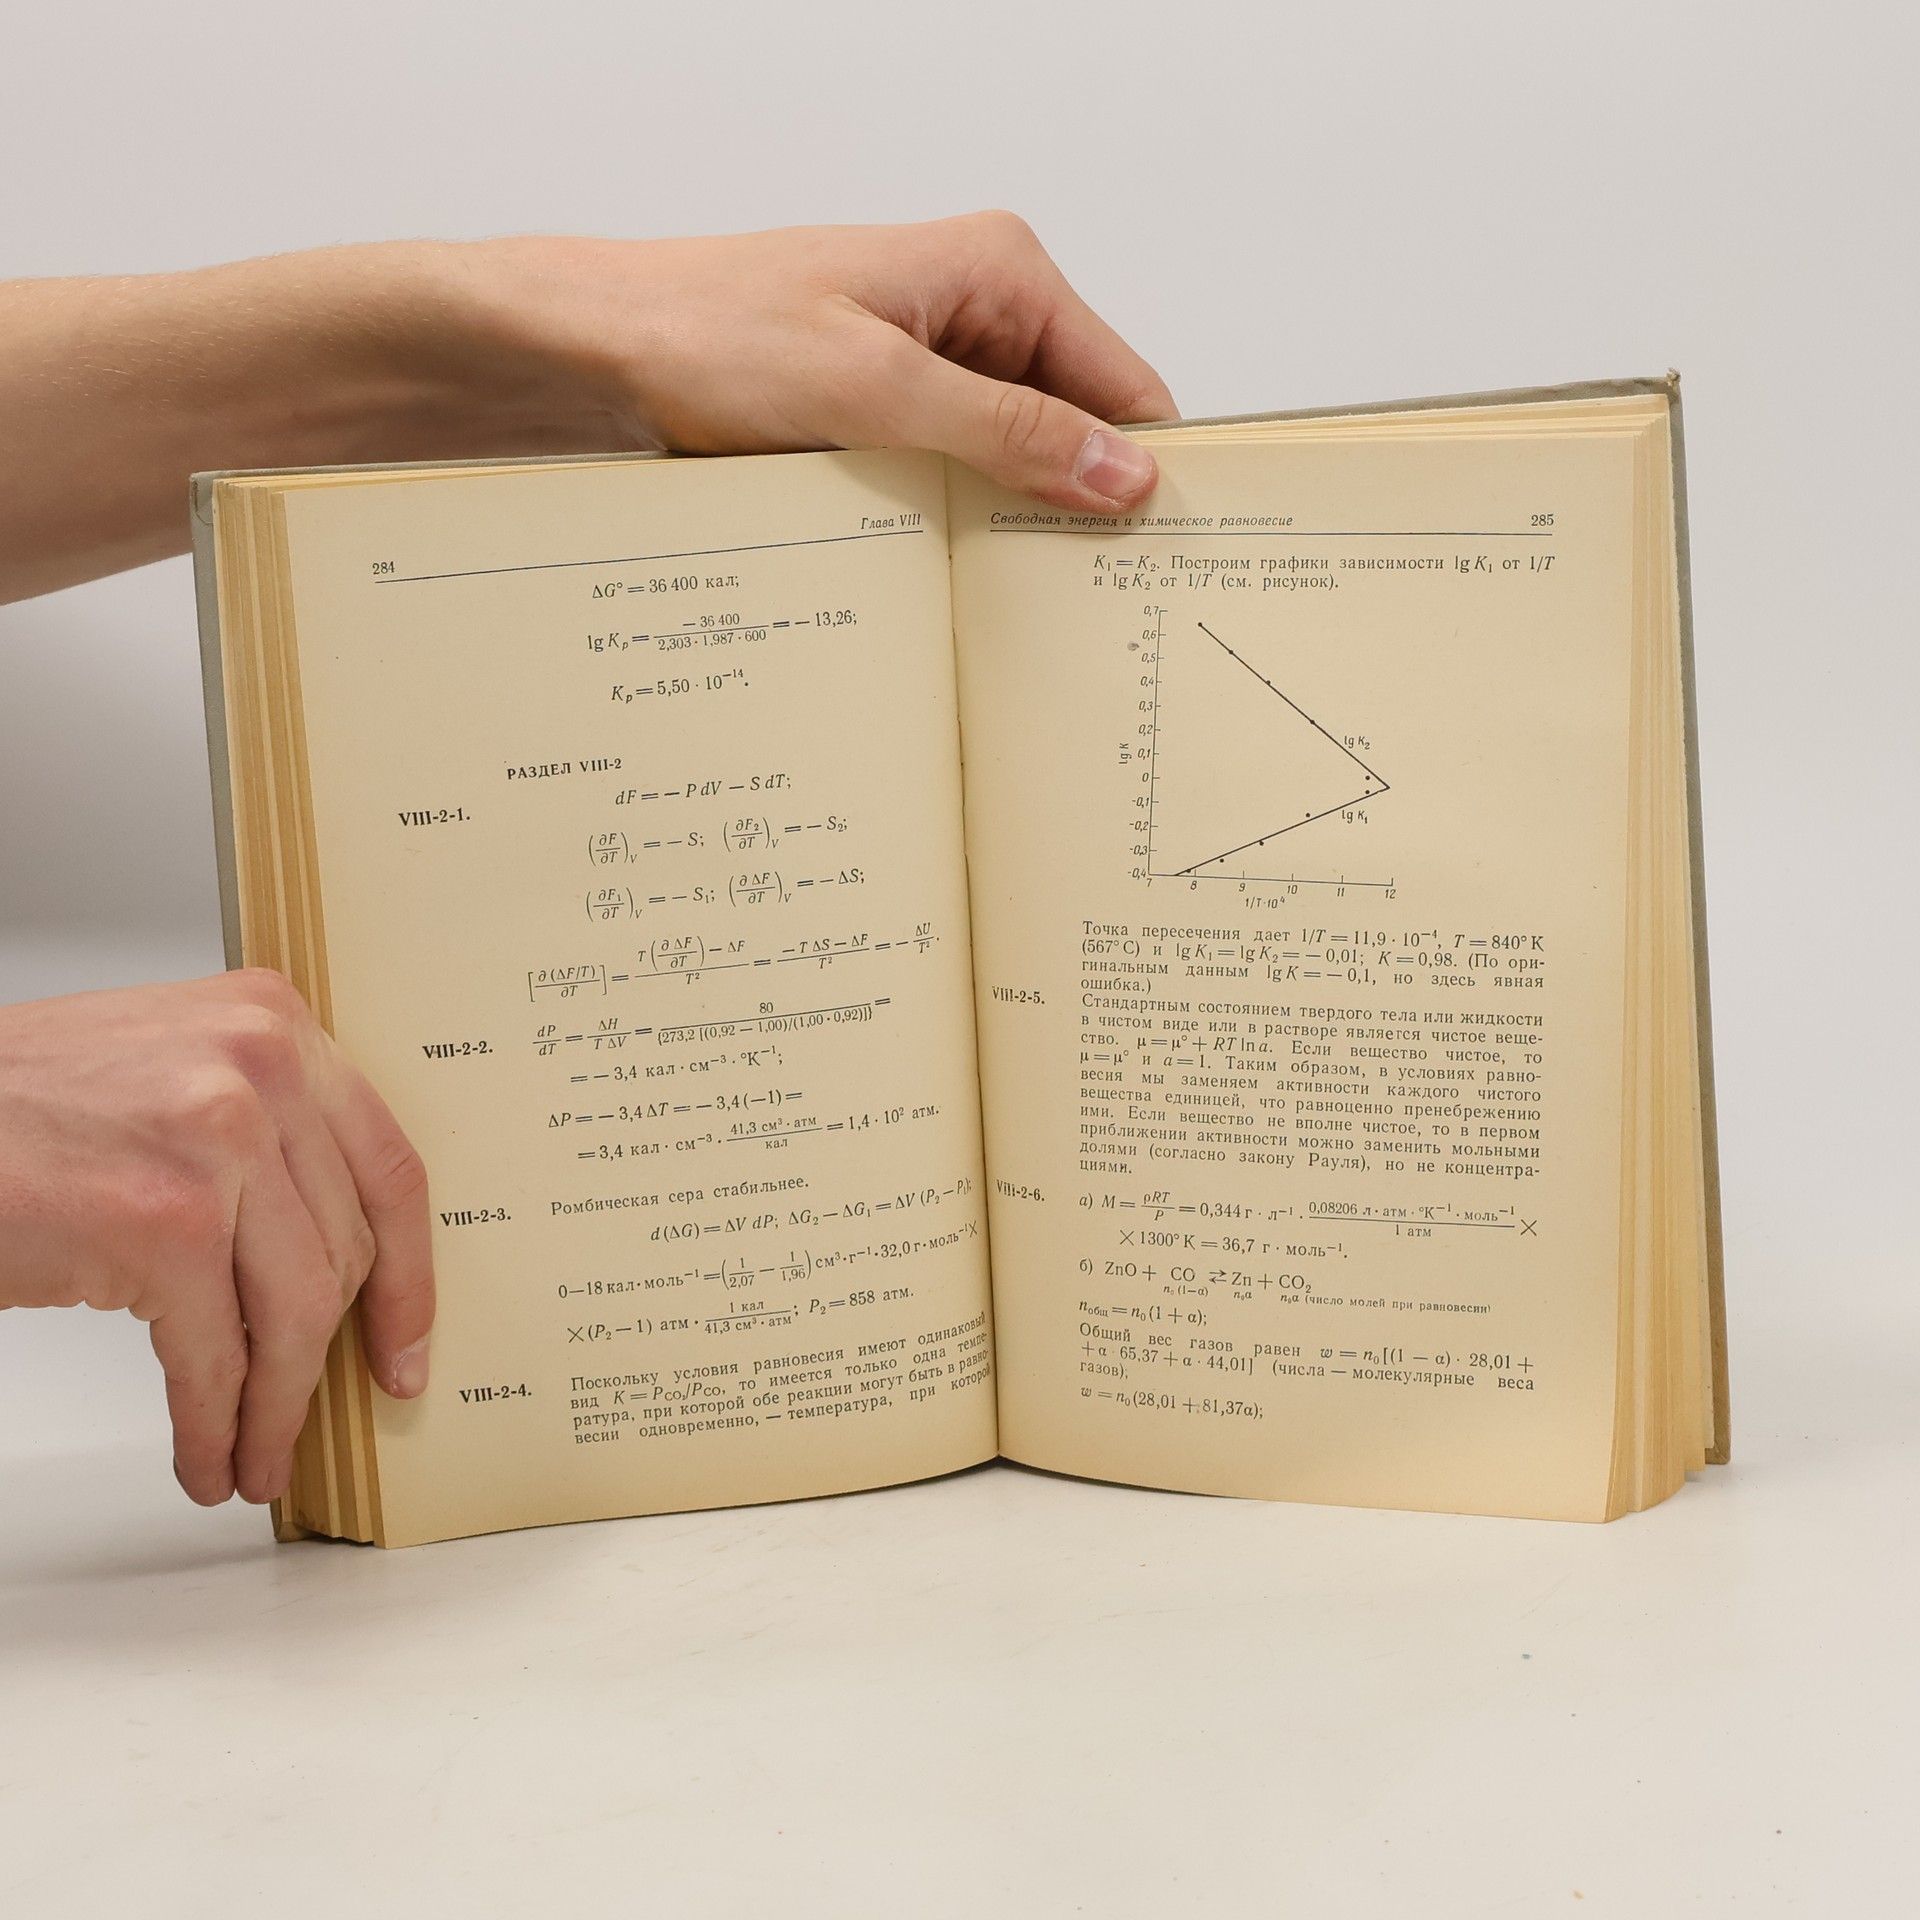 284
Глава VIII
ΔG° = 36 400 кал;
lg Kp = − 36 400 / 2,303 · 1,987 · 600 = − 13,26;
Kp = 5,50 · 10⁻¹⁴.
РАЗДЕЛ VIII-2
VIII-2-1.
dF = − P dV − S dT;
(∂F/∂T)V = − S; (∂F₂/∂T)V = − S₂;
(∂F₁/∂T)V = − S₁; (∂ ΔF/∂T)V = − ΔS;
[∂ (ΔF/T)/∂T] = T (∂ ΔF/∂T) − ΔF / T² = − T ΔS − ΔF / T² = − ΔU/T².
VIII-2-2.
dP/dT = ΔH/T ΔV = 80 / {273,2 [(0,92 − 1,00)/(1,00 · 0,92)]} =
= − 3,4 кал · см⁻³ · °К⁻¹;
ΔP = − 3,4 ΔT = − 3,4 (−1) =
= 3,4 кал · см⁻³ · 41,3 см³ · атм / кал = 1,4 · 10² атм.
VIII-2-3.
Ромбическая сера стабильнее.
d (ΔG) = ΔV dP; ΔG₂ − ΔG₁ = ΔV (P₂ − P₁);
0—18 кал · моль⁻¹ = (1/2,07 − 1/1,96) см³ · г⁻¹ · 32,0 г · моль⁻¹ ×
× (P₂ − 1) атм · 1 кал / 41,3 см³ · атм; P₂ = 858 атм.
VIII-2-4.
Поскольку условия равновесия имеют одинаковый
вид K = PCO₂/PCO, то имеется только одна темпе-
ратура, при которой обе реакции могут быть в равно-
весии одновременно, — температура, при которой
Свободная энергия и химическое равновесие
285
K₁ = K₂. Построим графики зависимости lg K₁ от 1/T
и lg K₂ от 1/T (см. рисунок).
0,7
0,6
0,5
0,4
0,3
0,2
0,1
0
-0,1
-0,2
-0,3
-0,4
lg K
lg K₂
lg K₁
7 8 9 10 11 12
1/T·10⁴
Точка пересечения дает 1/T = 11,9 · 10⁻⁴, T = 840° К
(567° C) и lg K₁ = lg K₂ = − 0,01; K = 0,98. (По ори-
гинальным данным lg K = − 0,1, но здесь явная
ошибка.)
VIII-2-5.
Стандартным состоянием твердого тела или жидкости
в чистом виде или в растворе является чистое веще-
ство. μ = μ° + RT ln a. Если вещество чистое, то
μ = μ° и a = 1. Таким образом, в условиях равно-
весия мы заменяем активности каждого чистого
вещества единицей, что равноценно пренебрежению
ими. Если вещество не вполне чистое, то в первом
приближении активности можно заменить мольными
долями (согласно закону Рауля), но не концентра-
циями.
VIII-2-6.
а) M = ρRT/P = 0,344 г · л⁻¹ · 0,08206 л · атм · °К⁻¹ · моль⁻¹ / 1 атм ×
× 1300° К = 36,7 г · моль⁻¹.
б) ZnO + CO ⇄ Zn + CO₂
n₀ (1—α) n₀α n₀α (число молей при равновесии)
nобщ = n₀ (1 + α);
Общий вес газов равен w = n₀ [(1 − α) · 28,01 +
+ α · 65,37 + α · 44,01] (числа — молекулярные веса
газов);
w = n₀ (28,01 + 81,37α);